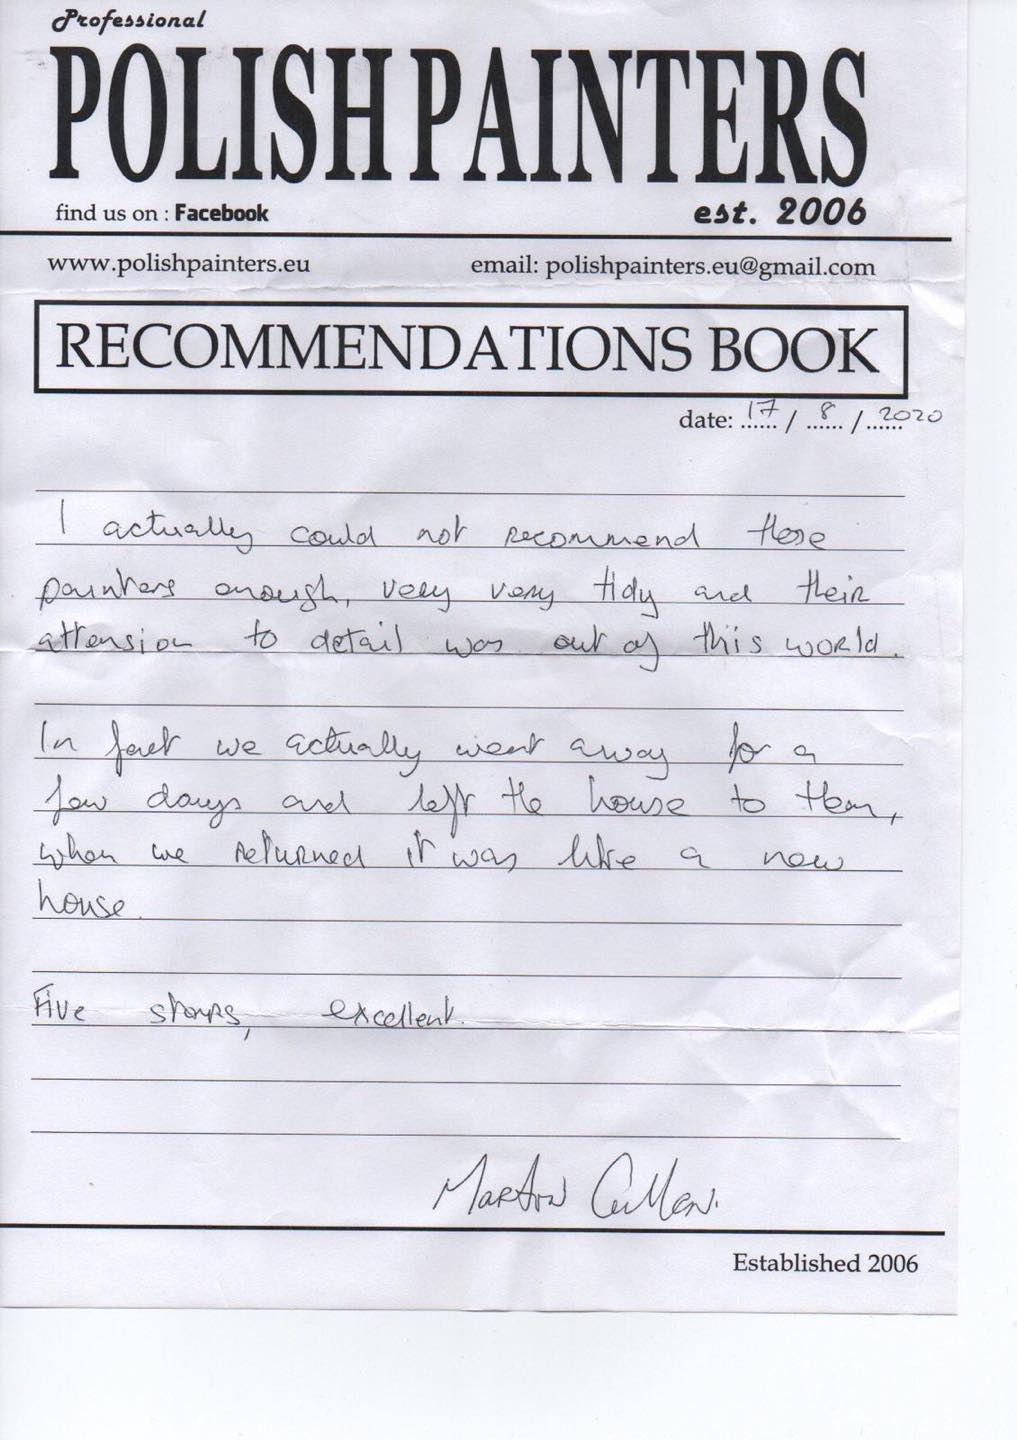 Professional
POLISH PAINTERS
find us on : Facebook
est. 2006
www.polishpainters.eu
email: polishpainters.eu@gmail.com
RECOMMENDATIONS BOOK
date: 17 / 8 / 2020
I actually could not recommend these
painters enough, very very tidy and their
attension to detail was out of this world.
In fact we actually went away for a
few days and left the house to them,
when we returned it was like a new
house.
Five stars, excellent.
Martin Cullen.
Established 2006